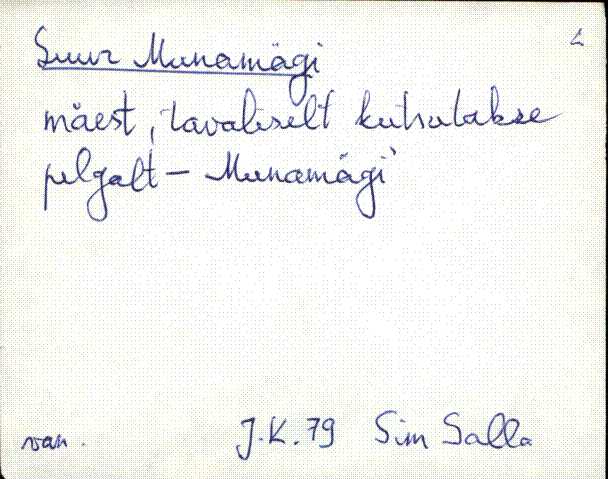 Suur Munamägi
mäest, tavaliselt kutsutakse
pelgalt – Munamägi
van.
J.K. 79 Sim Salla